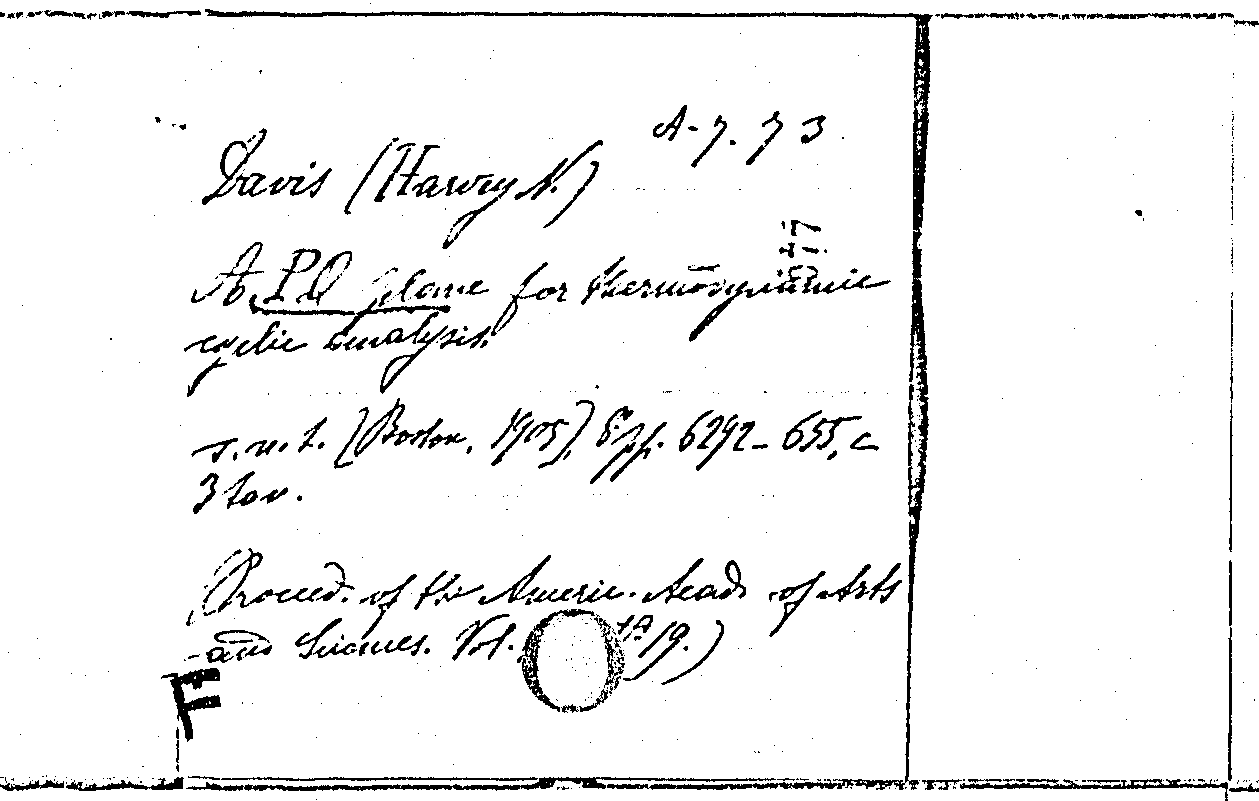 A-7. 73
Davis (Harvey N.)
A PQ plane for thermodynamic
cyclic analysis.
s. n. t. [Boston, 1905] 8º pp. 6292-655, c
3 tav.
(Proceed. of the Americ. Acad. of Arts
and Sciences. Vol. 19.)
F